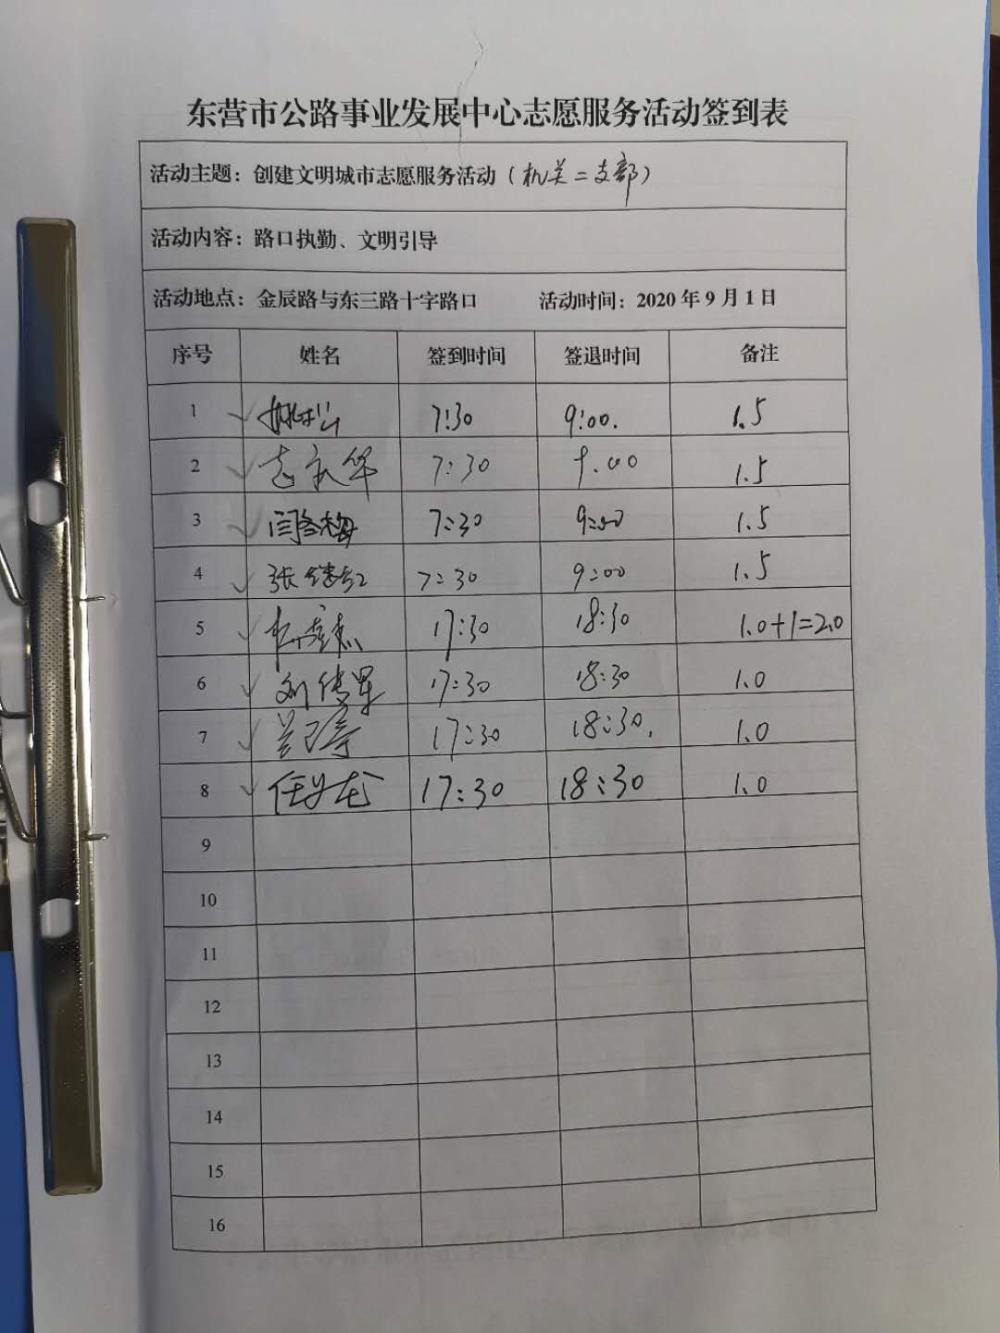 东营市公路事业发展中心志愿服务活动签到表
活动主题：创建文明城市志愿服务活动（机关二支部）
活动内容：路口执勤、文明引导
活动地点：金辰路与东三路十字路口 活动时间：2020年9月1日
序号 姓名 签到时间 签退时间 备注
1 姚松 7:30 9:00. 1.5
2 7:30 9.00 1.5
3 闫冬梅 7:30 9:00 1.5
4 张 7:30 9:00 1.5
5 17:30 18:30 1.0+1=2.0
6 刘传军 17:30 18:30 1.0
7 17:30 18:30. 1.0
8 任 17:30 18:30 1.0
9
10
11
12
13
14
15
16